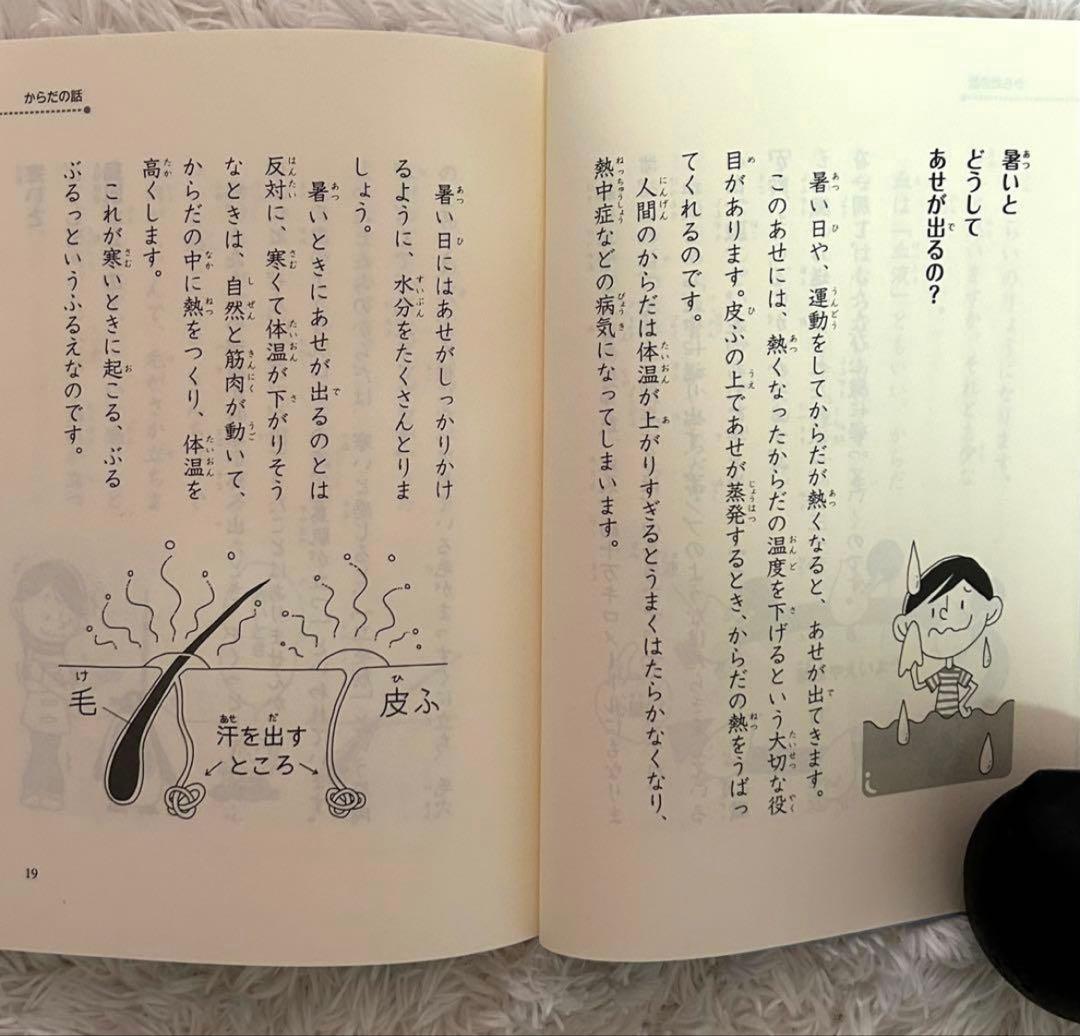 暑いと
どうして
あせが出るの？
暑い日や、運動をしてからだが熱くなると、あせが出てきます。
このあせには、熱くなったからだの温度を下げるという大切な役
目があります。皮ふの上であせが蒸発するとき、からだの熱をうばっ
てくれるのです。
人間のからだは体温が上がりすぎるとうまくはたらかなくなり、
熱中症などの病気になってしまいます。
からだの話
暑い日にはあせがしっかりかけ
るように、水分をたくさんとりま
しょう。
暑いときにあせが出るのとは
反対に、寒くて体温が下がりそう
なときは、自然と筋肉が動いて、
からだの中に熱をつくり、体温を
高くします。
これが寒いときに起こる、ぶる
ぶるっというふるえなのです。
毛
皮ふ
汗を出す
ところ
19